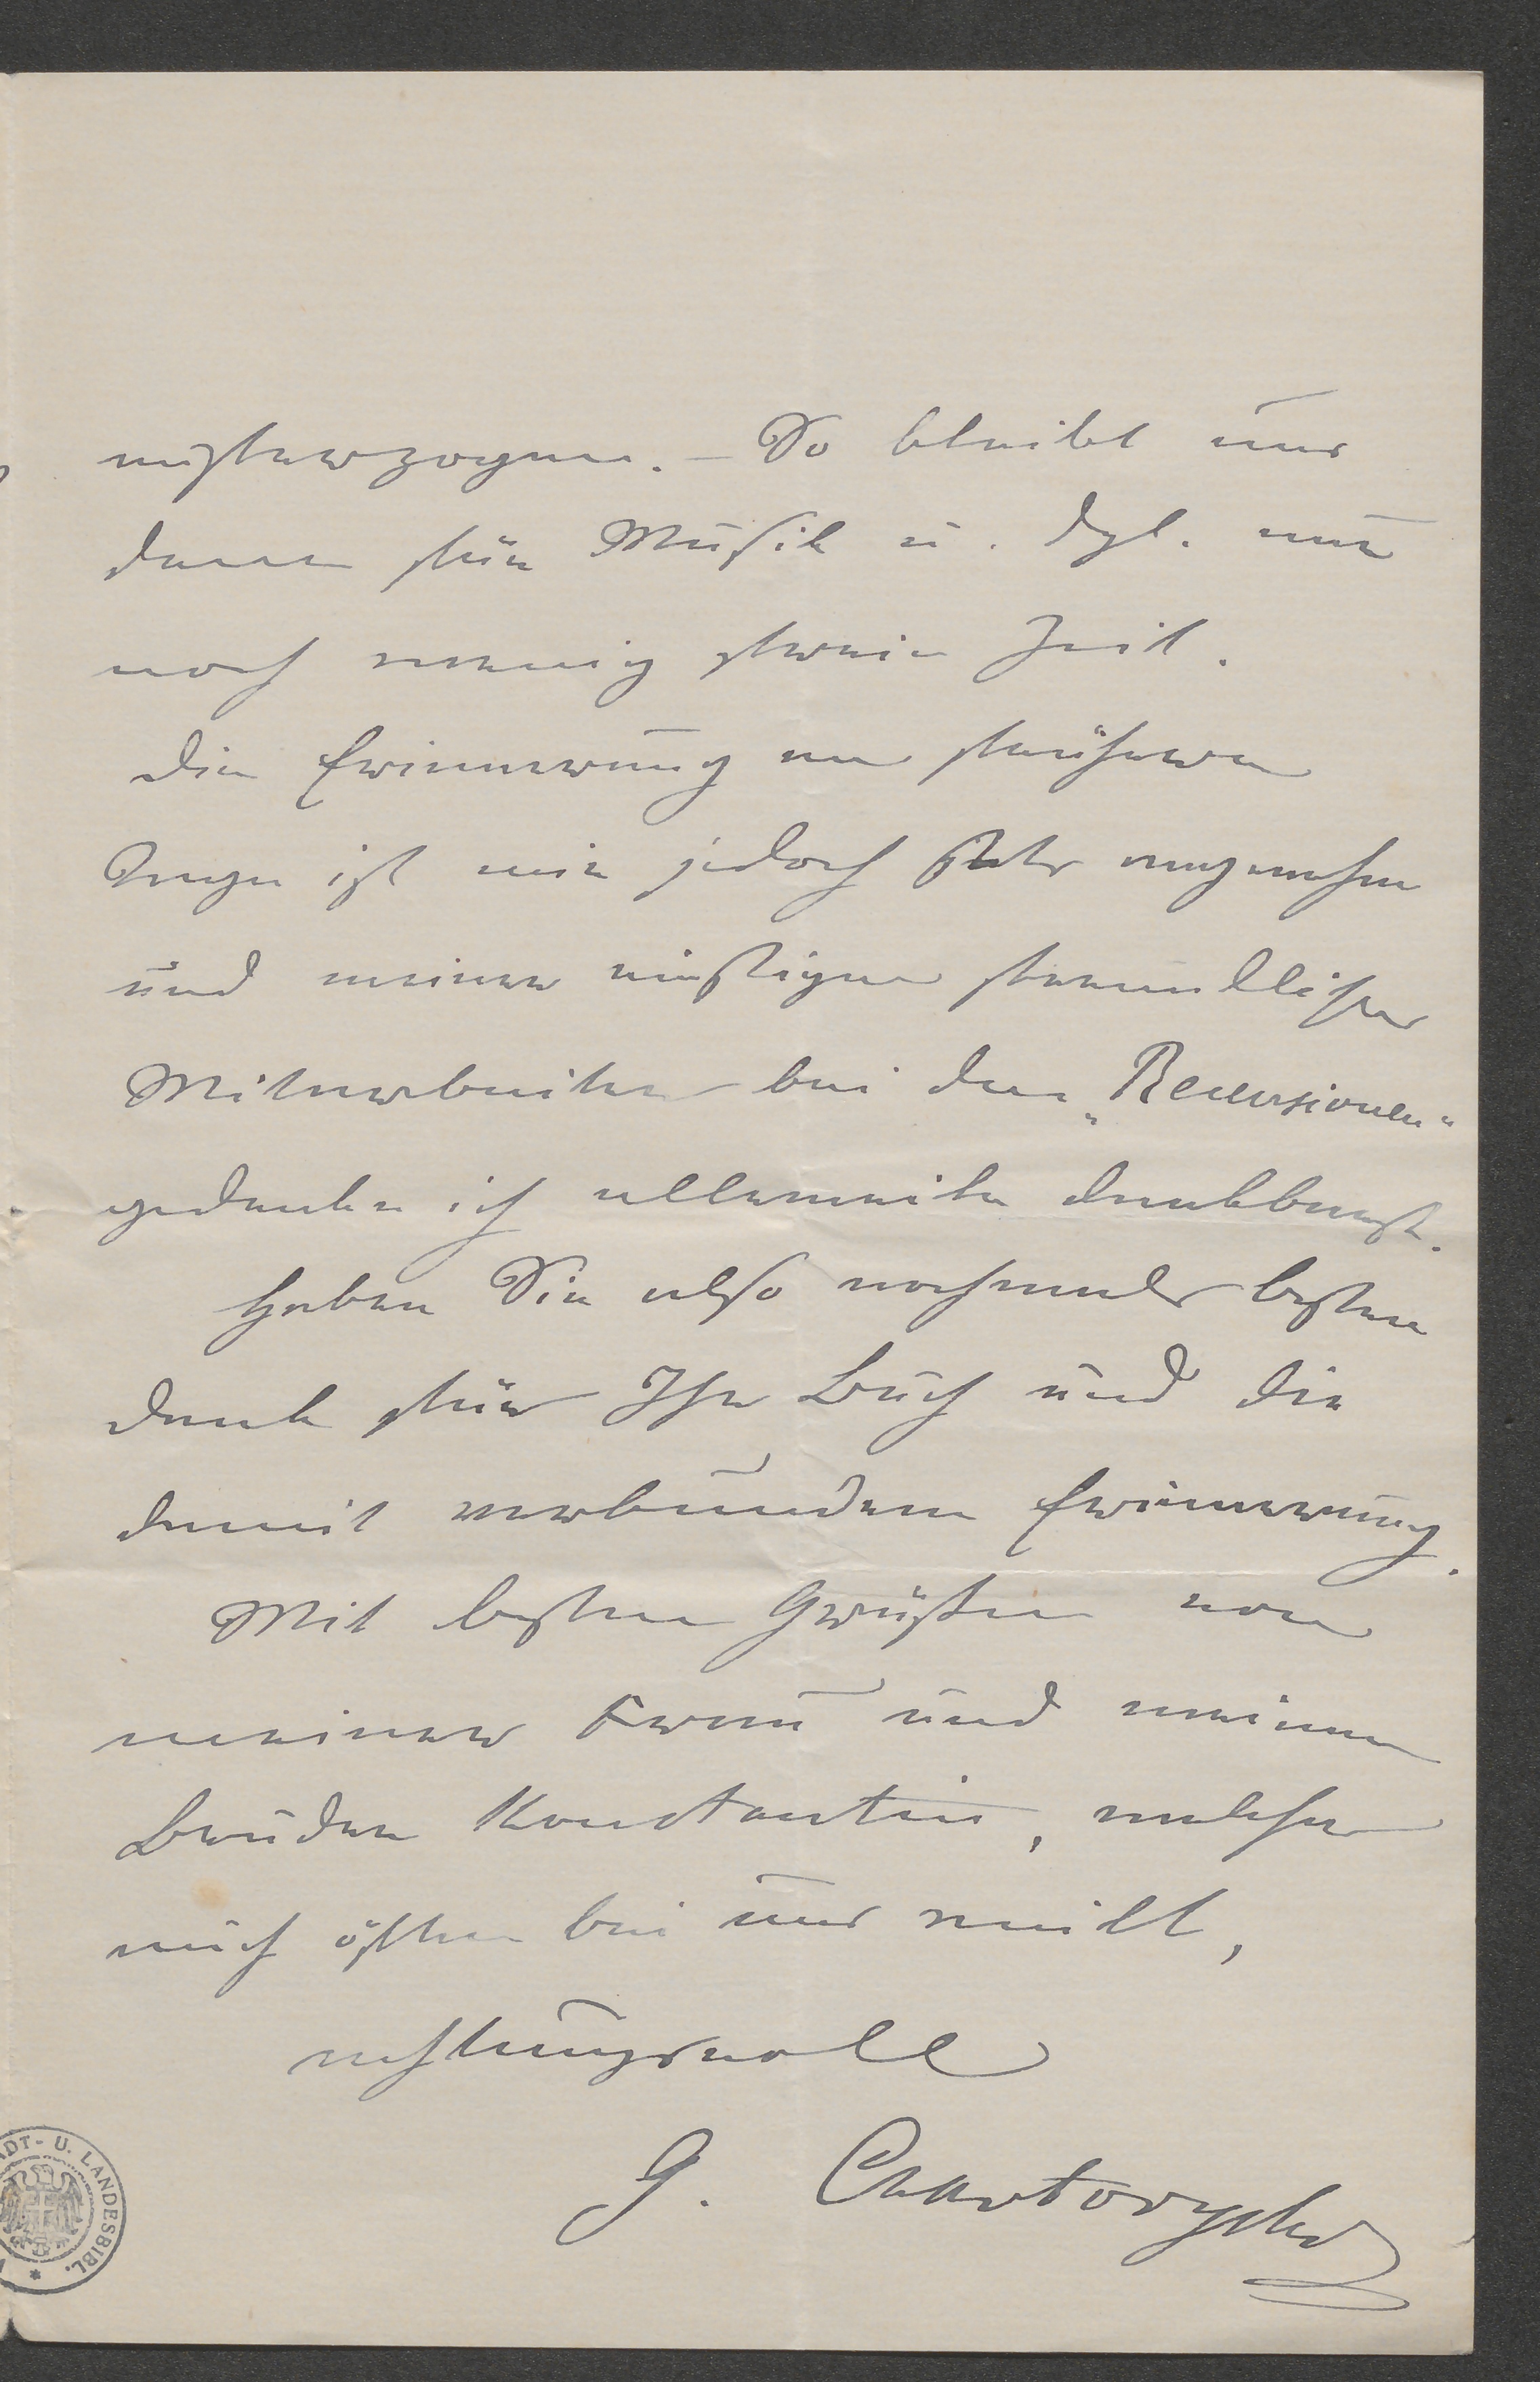 mißerzogen. – So bleibt uns
dann für Musik u. dgl. nur
noch wenig freie Zeit.
Die Erinnerung an frühere
Tage ist mir jedoch stets angenehm
und meiner einstigen freundlichen
Mitarbeiter bei den „Recensionen“
gedenke ich allerweile dankbarst.
Haben Sie also nochmals besten
Dank für Ihr Buch und die
damit verbundene Erinnerung.
Mit besten Grüßen von
meiner Frau und meinem
Bruder Konstantin, welcher
auch öfter bei uns weilt,
achtungsvoll
G. Czartoryski
ADT- U. LANDESBIBL.